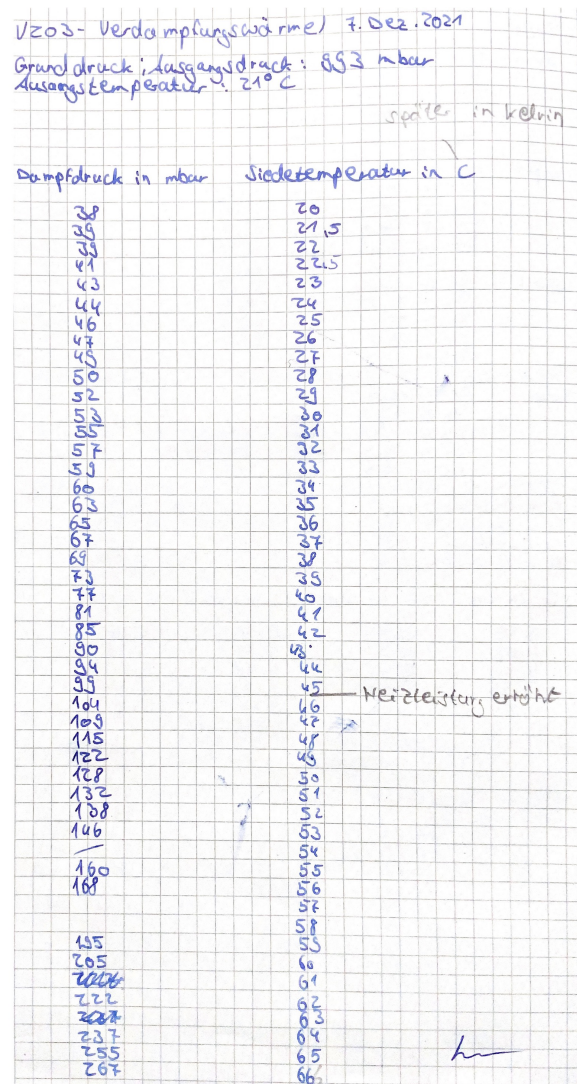 V203- Verdampfungswärme) 7. Dez. 2021
Grunddruck; Ausgangsdruck: 993 mbar
Ausangstemperatur: 21° C
später in kelvin
Dampfdruck in mbar Siedetemperatur in C
38 20
39 21,5
39 22
41 22,5
43 23
44 24
46 25
47 26
49 27
50 28
52 29
53 30
55 31
57 32
59 33
60 34
63 35
65 36
67 37
69 38
73 39
77 40
81 41
85 42
90 43
94 44
99 45 — Heizleistung erhöht
104 46
109 47
115 48
122 49
128 50
132 51
138 52
146 53
— 54
160 55
168 56
57
58
195 59
205 60
61
222 62
63
237 64
255 65
267 66